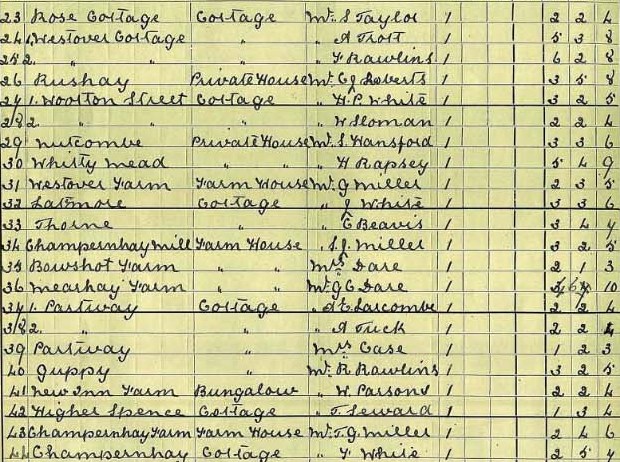 23 Rose Cottage Cottage Mr. S Taylor 1 2 2 4
24 1. Westover Cottage " " A Trott 1 5 3 8
25 2. " " " " F Rawlins 1 6 2 8
26 Rushay Private House Mr. C J Roberts 1 3 5 8
27 1. Wootton Street Cottage " H. P. White 1 3 2 5
28 2. " " " " W Sloman 1 2 2 4
29 Nutcombe Private House Mr. S. Hansford 1 3 3 6
30 Whitty Mead " " " H Rapsey 1 5 4 9
31 Westover Farm Farm House Mr. G Miller 1 2 3 5
32 Cottage " J White 1 3 3 6
33 Thorne " " E Beavis 1 3 4 7
34 Champernhay Mill Farm House " S. J. Miller 1 3 2 5
35 Bowshot Farm " " Mrs Dare 1 2 1 3
36 Mearhay Farm " " Mr. G C Dare 1 10
37 1. Partway Cottage " A E Larcombe 1 2 2 4
38 2. " " " A Tuck 1 2 2 4
39 Partway " Mrs Case 1 1 2 3
40 Guppy " Mr. R Rawlins 1 3 2 5
41 New Inn Farm Bungalow " W. Parsons 1 2 2 4
42 Higher Spence Cottage " T. Seward 1 1 3 4
43 Champernhay Farm Farm House Mr. T. G. Miller 1 2 4 6
44 Champernhay Cottage " F White 1 2 5 7